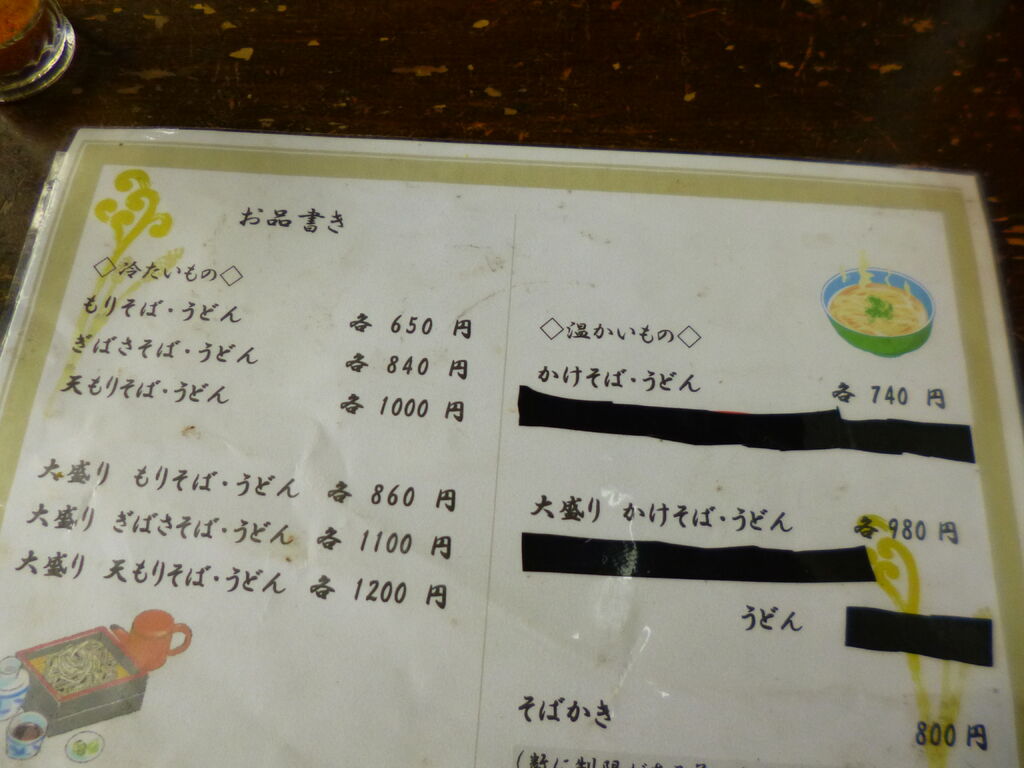 お品書き
◇冷たいもの◇
もりそば・うどん 各 650 円
ぎばさそば・うどん 各 840 円
天もりそば・うどん 各 1000 円
大盛り もりそば・うどん 各 860 円
大盛り ぎばさそば・うどん 各 1100 円
大盛り 天もりそば・うどん 各 1200 円
◇温かいもの◇
かけそば・うどん 各 740 円
大盛り かけそば・うどん 各 980 円
うどん
そばかき 800 円
(数に制限がある